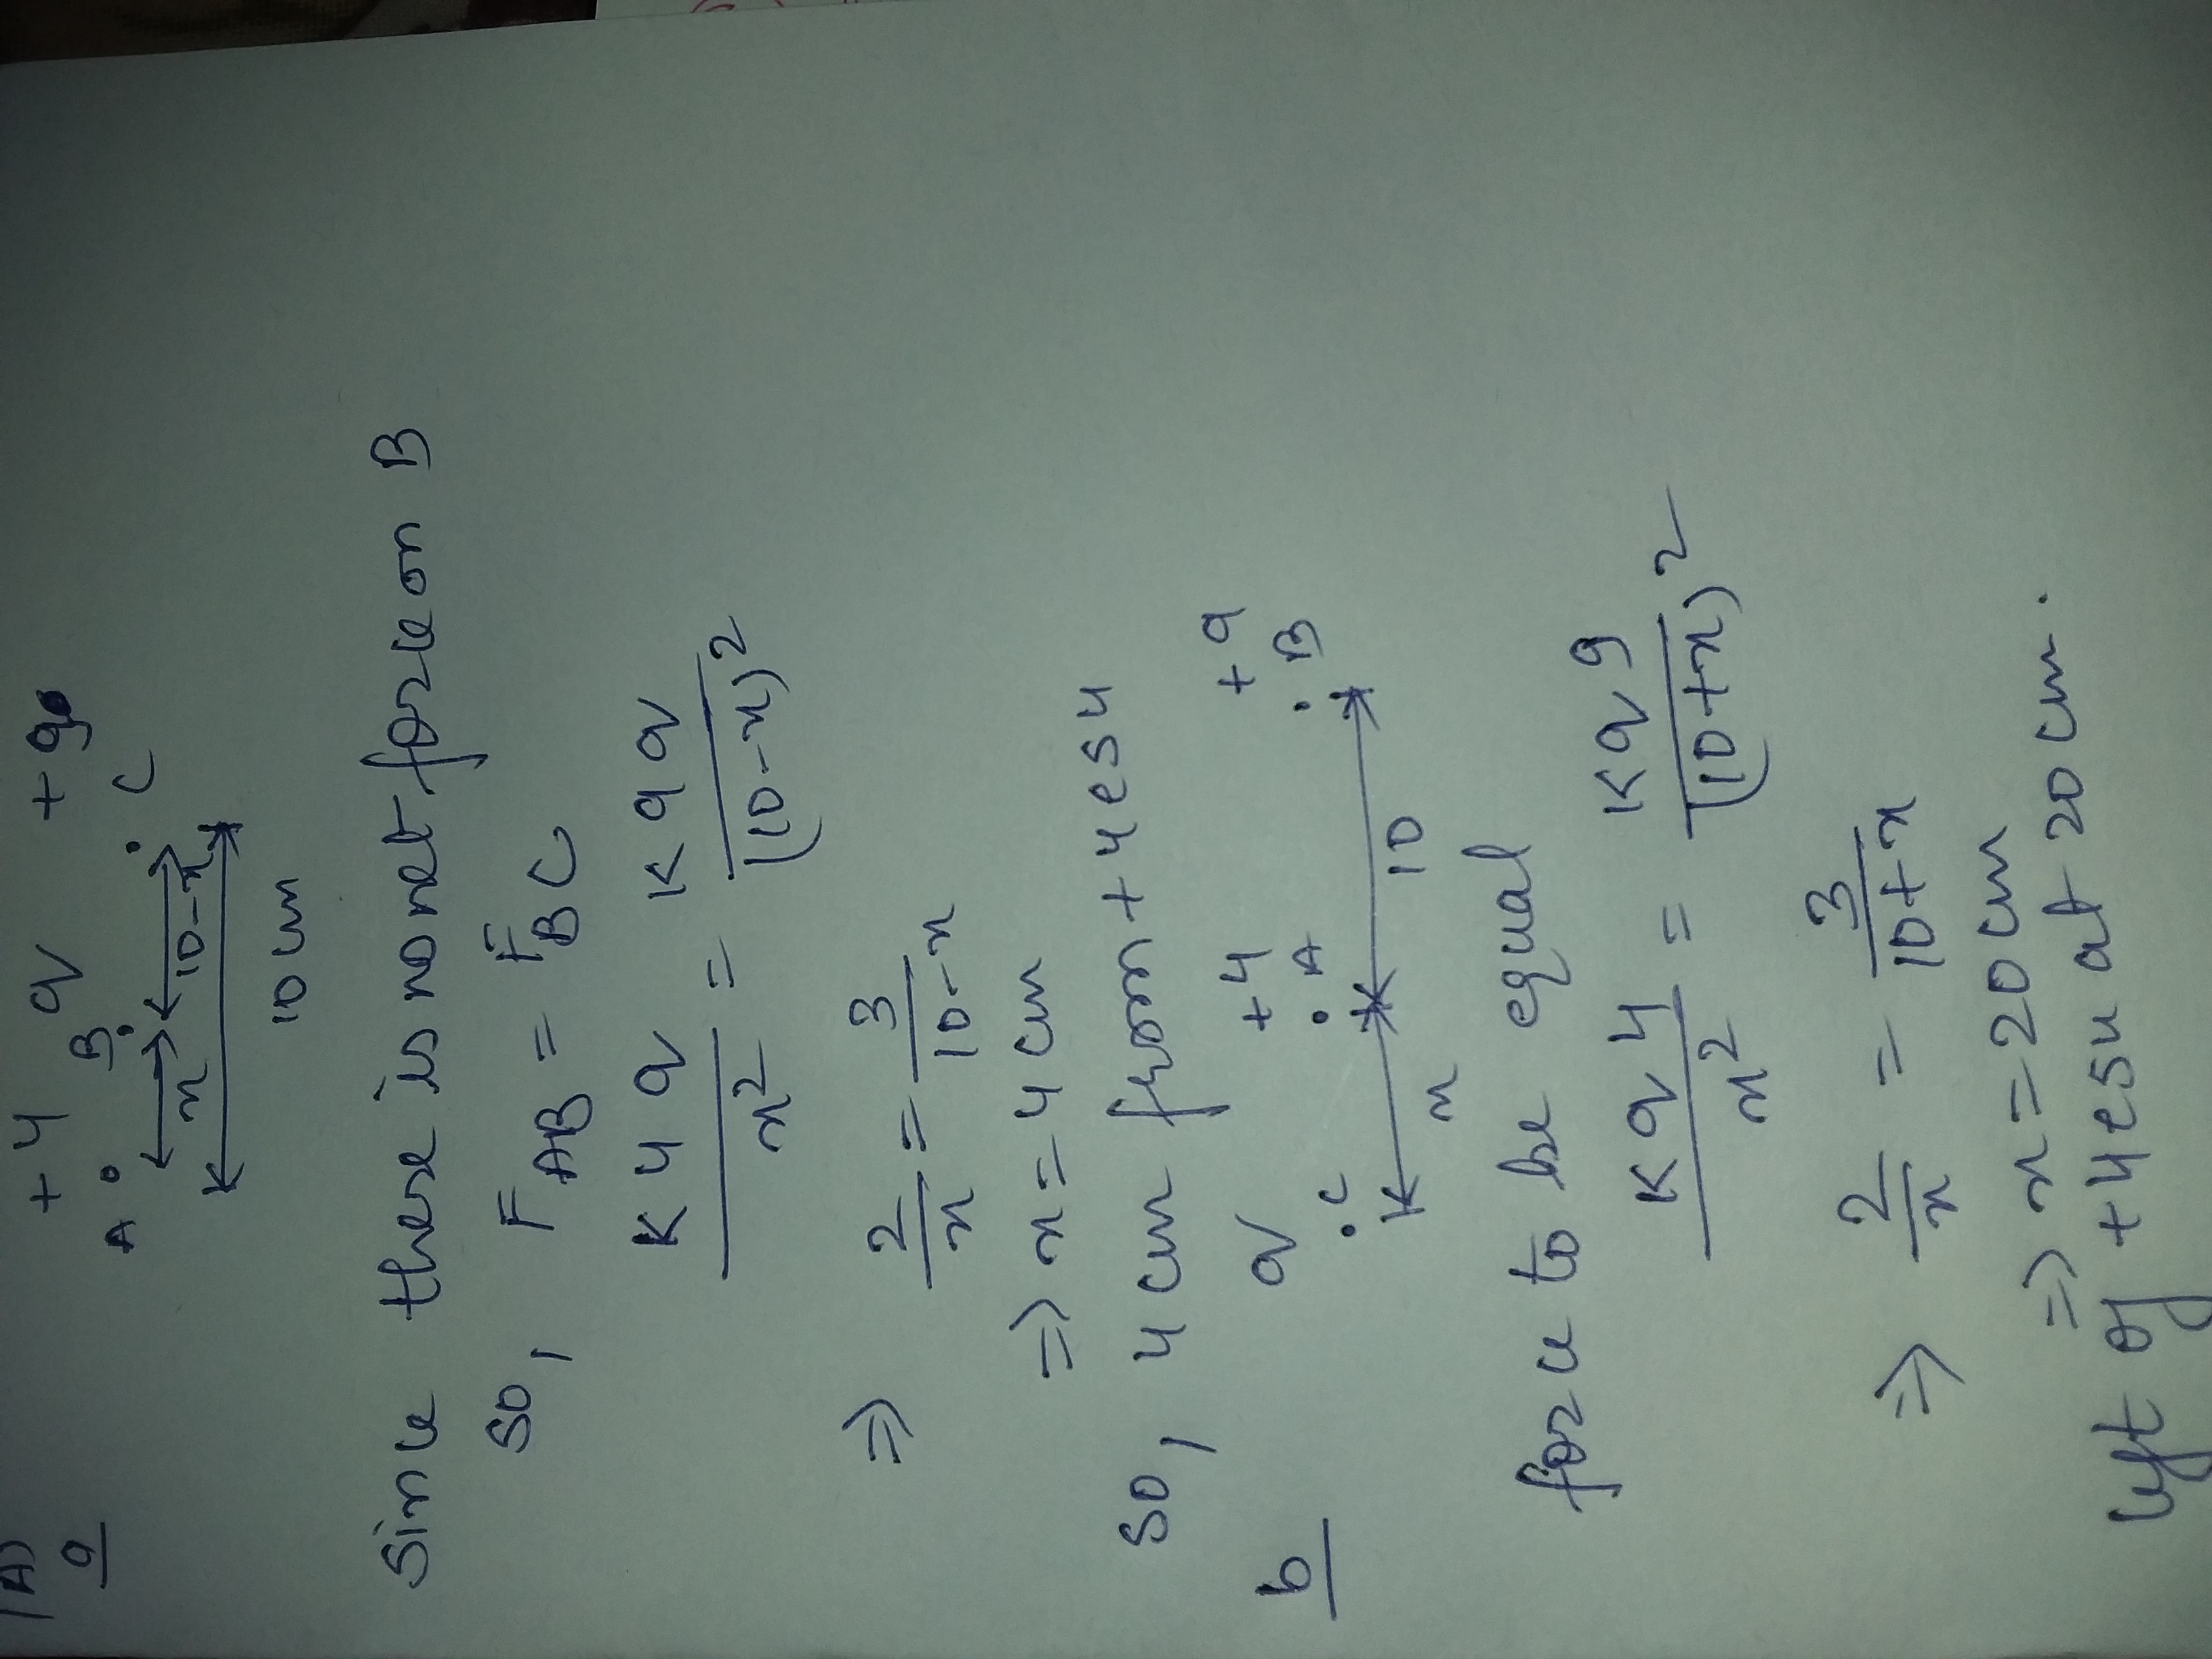 1A)
a
+4 q +9
A B C
x 10-x
10 cm
Since there is no net force on B
So, F_AB = F_BC
K4q/x² = K9q/(10-x)²
⇒ 2/x = 3/10-x
⇒ x = 4 cm
So, 4 cm from +4 esu
b
q +4 +9
C A B
x 10
force to be equal
Kq4/x² = Kq9/(10+x)²
⇒ 2/x = 3/10+x
⇒ x = 20 cm
left of +4 esu at 20 cm.